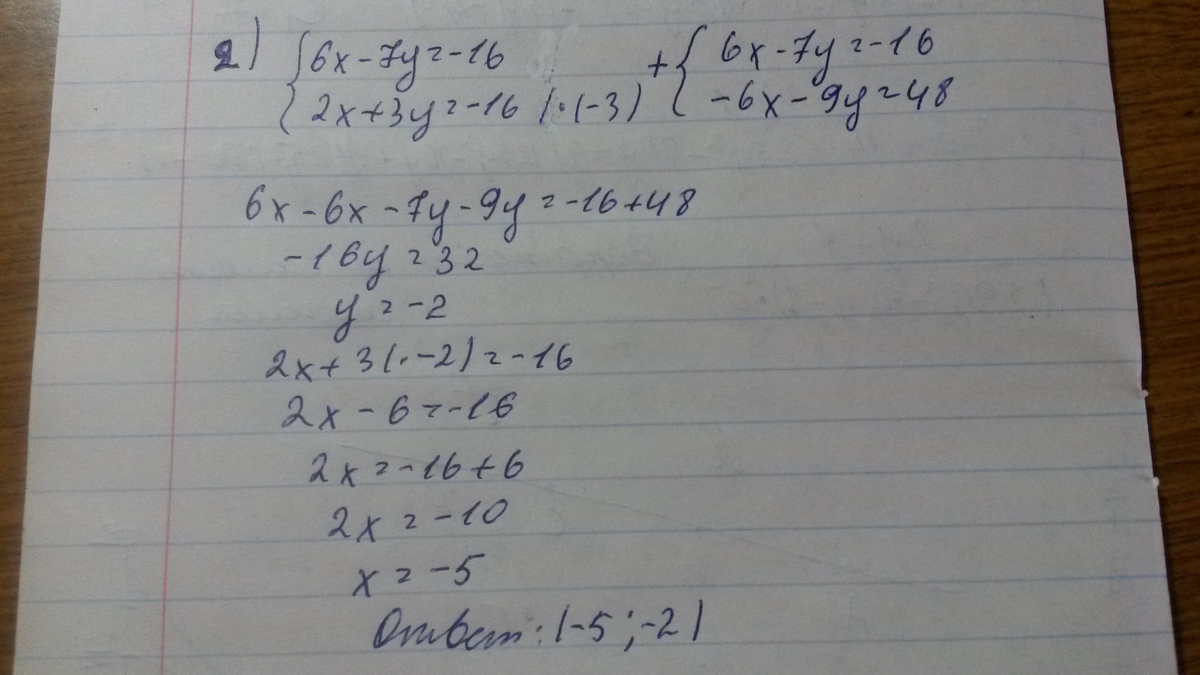 2) {6x-7y=-16 +{6x-7y=-16
{2x+3y=-16 |·(-3) {-6x-9y=48
6x-6x-7y-9y=-16+48
-16y=32
y=-2
2x+3(·-2)=-16
2x-6=-16
2x=-16+6
2x=-10
x=-5
Ответ: (-5;-2)